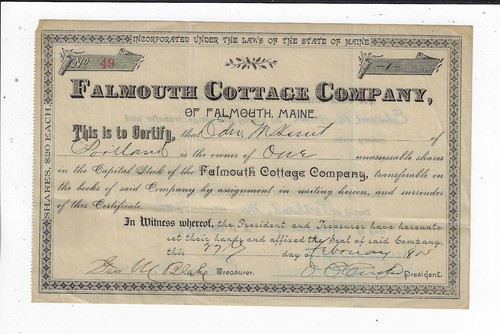 INCORPORATED UNDER THE LAWS OF THE STATE OF MAINE
No 49
-1- Shares
FALMOUTH COTTAGE COMPANY,
OF FALMOUTH, MAINE.
This is to Certify, that Edw. of
Portland is the owner of One unassessable shares
in the Capital Stock of the Falmouth Cottage Company, transferable on
the books of said Company by assignment in writing hereon, and surrender
of this Certificate.
In Witness whereof, the President and Treasurer have hereunto
set their hands and affixed the Seal of said Company,
this day of February
Geo M Blake Treasurer. President.
SHARES, $20 EACH.